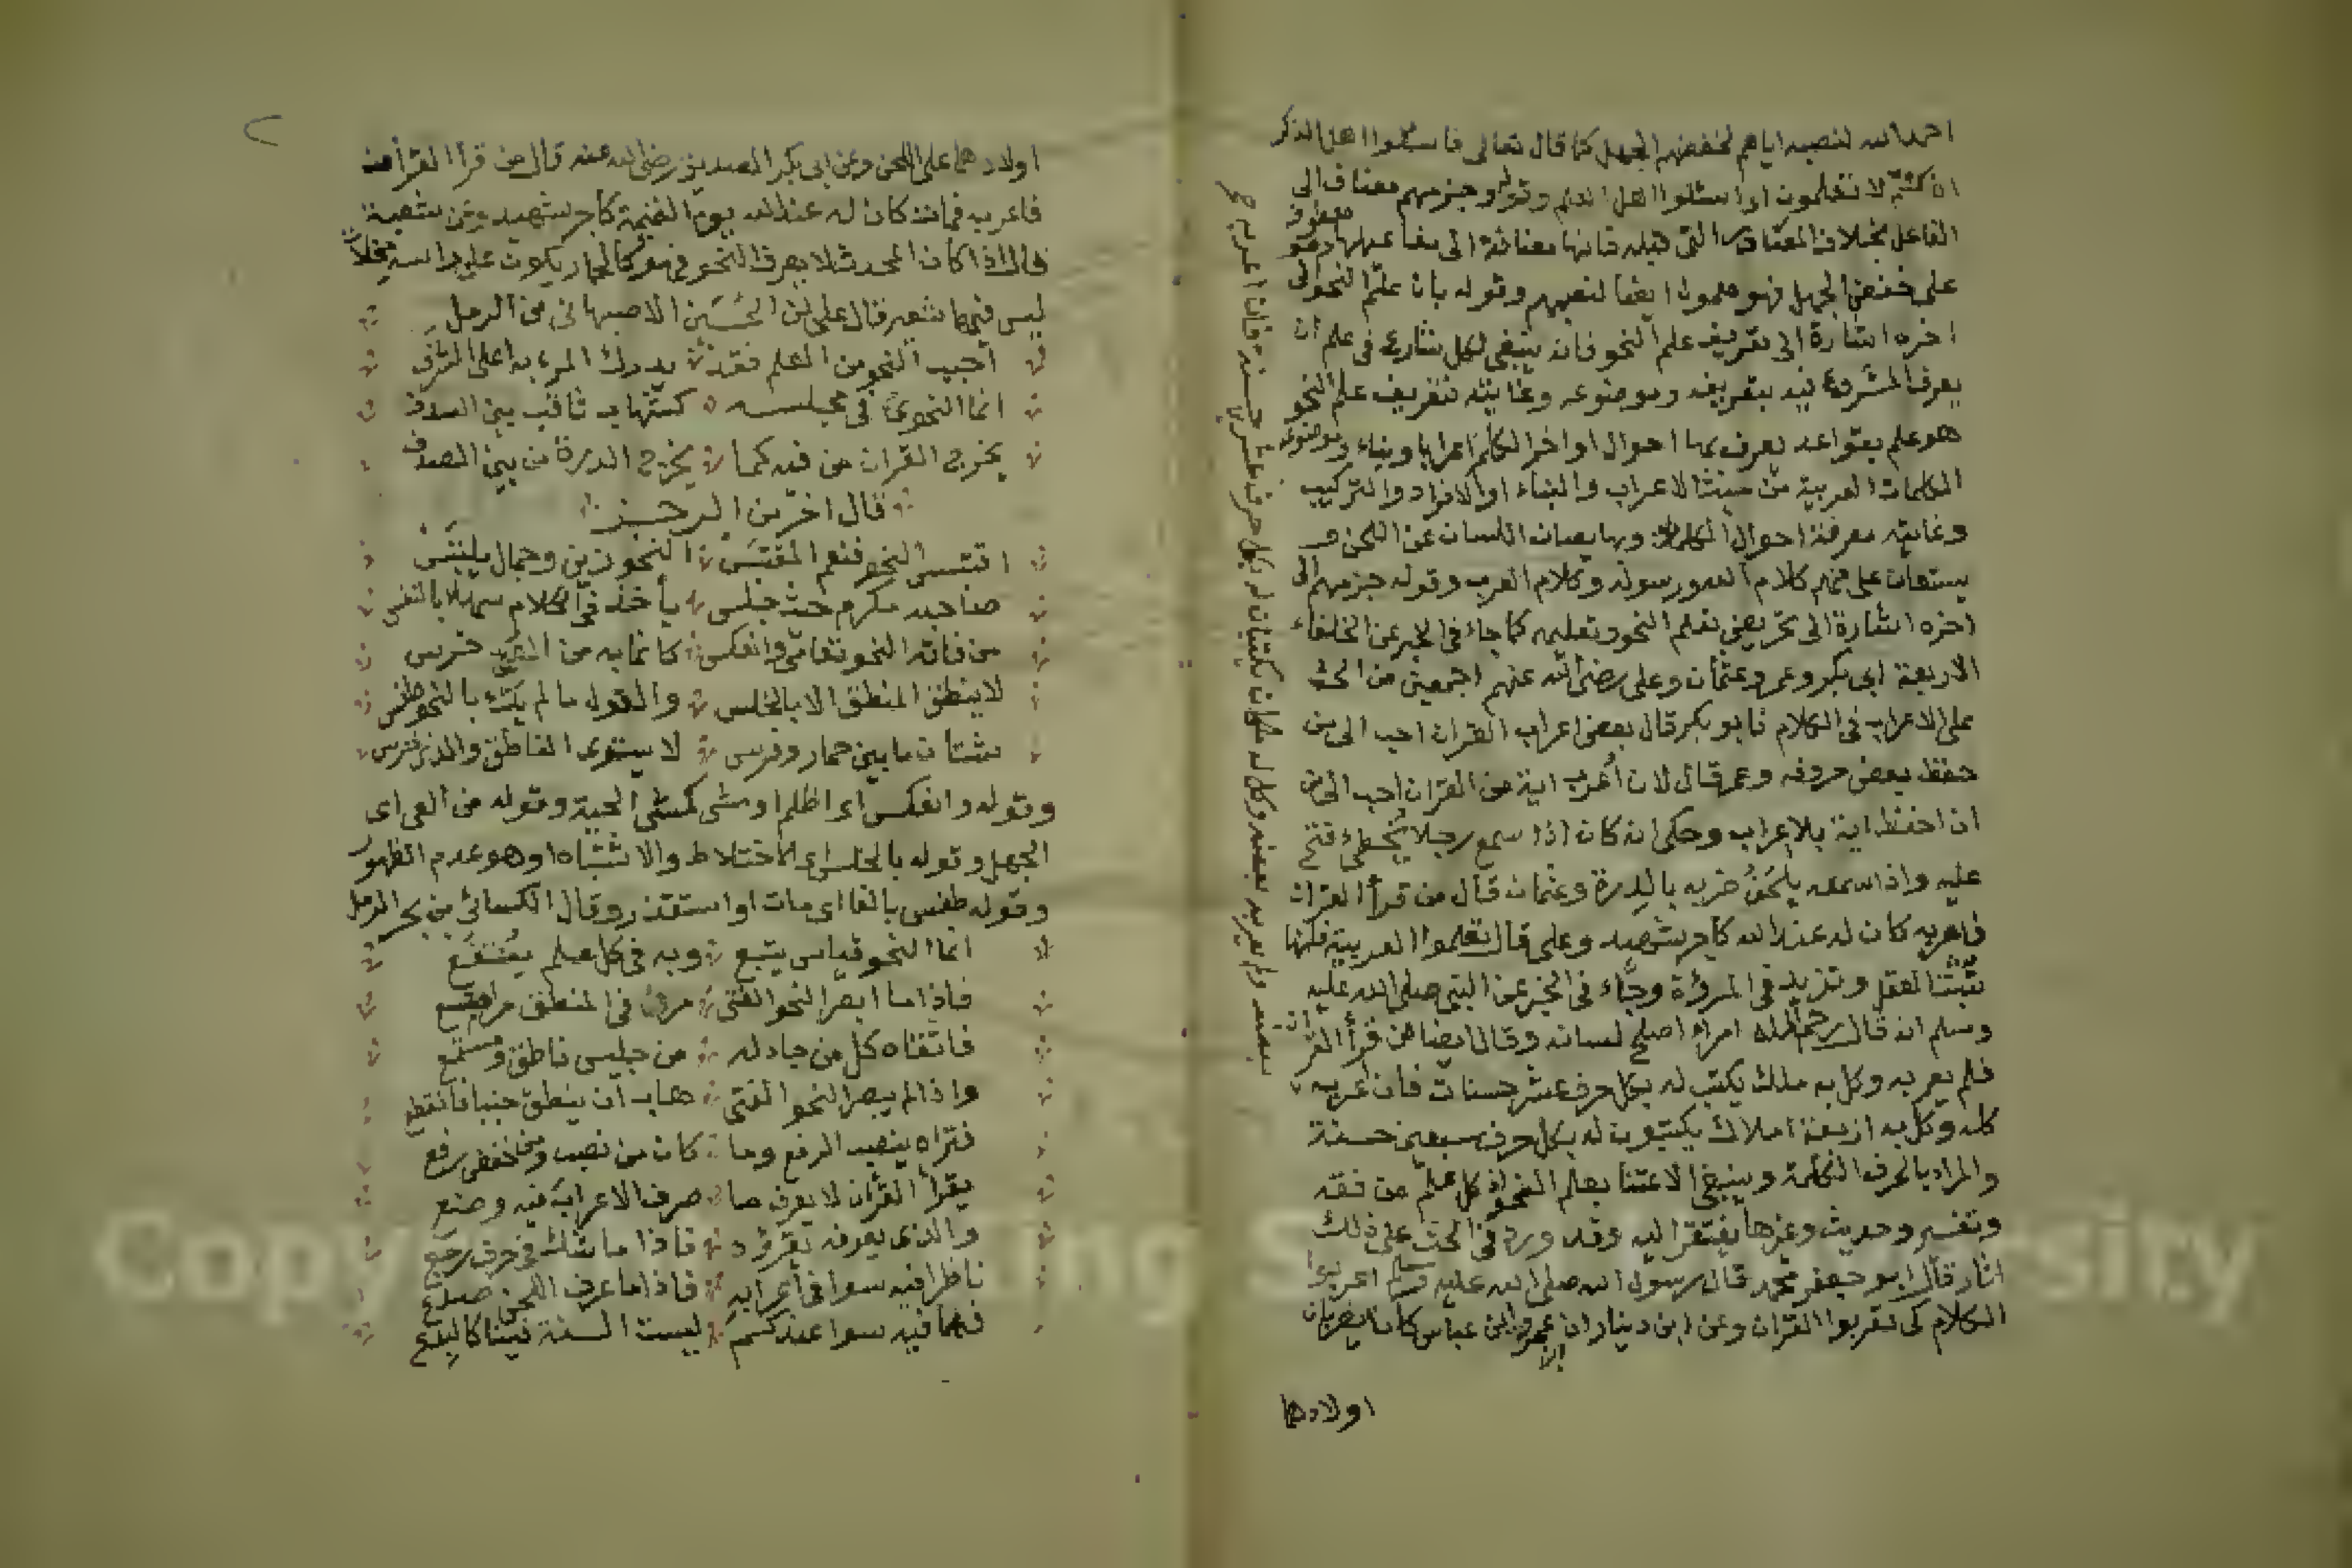 احمد الله لنصبه اياهم لخفضهم الجهل كما قال تعالى فاسئلوا اهل الذكر
ان كنتم لا تعلمون اى اسئلوا اهل العلم وقوله وجزمهم مضاف الى
الفاعل بخلاف المصادر التى قبله فانها مضافة الى مفاعيلها وهو معطوف
على خفض الجهل فهو معمول ايضا لنصبهم وقوله بان علم النحو الى
اخره اشارة الى تعريف علم النحو فانه ينبغى لكل شارع فى علم ان
يعرف المشروع فيه بتعريفه وموضوعه وغايته فتعريف علم النحو
هو علم بقواعد يعرف بها احوال اواخر الكلم اعرابا وبناء وموضوعه
الكلمات العربية من حيث الاعراب والبناء او الافراد والتركيب
وغايته معرفة احوال الكلام وبها يصان اللسان عن اللحن و
يستعان على فهم كلام الله ورسوله وكلام العرب وقوله جزمهم الى
اخره اشارة الى تحريض تعلم النحو وتعليمه كما جاء فى الخبر عن الخلفاء
الاربعة ابى بكر وعمر وعثمان وعلى رضى الله عنهم اجمعين من الحث
على الاعراب فى الكلام فابو بكر قال بعض اعراب القران احب الى من
حفظ بعض حروفه وعمر قال لان اعرب اية من القران احب الى من
ان احفظ اية بلا اعراب وحكى انه كان اذا سمع رجلا يخطئ فتح
عليه واذا سمعه يلحن ضربه بالدرة وعثمان قال من قرأ القران
فاعربه كان له عند الله كاجر شهيد وعلى قال تعلموا العربية فانها
تثبت العقل وتزيد فى المرؤة وجاء فى الخبر عن النبى صلى الله عليه
وسلم انه قال رحم الله امراء اصلح لسانه وقال ايضا من قرأ القران
فلم يعربه وكل به ملك يكتب له بكل حرف عشر حسنات فان اعربه
كله وكل به اربعة املاك يكتبون له بكل حرف سبعين حسنة
والمراد بالحرف الكلمة وينبغى الاعتنا بعلم النحو اذ كل علم من فقه
وتفسير وحديث وغيرها يفتقر اليه وقد ورد فى الحث على ذلك
اثار قال ابو جعفر محمد قال رسول الله صلى الله عليه وسلم اعربوا
الكلام كى تعربوا القران وعن ابن دينار ان عمر وابن عباس كانا يضربان
اولادهما
فان اعربه بعضه وكل له ملكان يكتبان له بكل حرف عشرين حسنة
اولادهما على اللحن وعن ابى بكر الصديق رضى الله عنه قال من قرأ القرأن
فاعربه فمات كان له عند الله يوم القيمة كاجر شهيد وعن شعبة
قال اذا كان المحدث لا يعرف النحو فهو كالحمار يكون على راسه مخلاة
ليس فيها شعير قال على بن الحسين الاصبهانى من الرمل
أحبب النحو من العلم فقد يدرك المرء به اعلى الشرف
انما النحوى فى مجلسه كشهاب ثاقب بين السدف
يخرج القران من فيه كما يخرج الدرة من بين الصدف
قال اخر من الرجز
اقتبس النحو فنعم المقتبس النحو زين وجمال يلتمس
صاحبه مكرم حيث جلس يأخذ فى الكلام سهلا بالنفس
من فاته النحو تعامى وانعكس كانما به من العى خرس
لا ينطق المنطق الا بالخلس والقول ما لم يك بالنحو طفس
شتان ما بين حمار وفرس لا يستوى الناطق والذى خرس
وقوله وانعكس اى اظلم او مشى كمشى الحية وقوله من العى اى
الجهل وقوله بالخلس اى الاختلاط والاشتباه او هو عدم الظهور
وقوله طفس بالفا اى مات او استقذر وقال الكسائى من بحر الرمل
انما النحو قياس يتبع وبه فى كل علم ينتفع
فاذا ما ابصر النحو الفتى مر فى المنطق مرا فاتسع
فاتقاه كل من جادله من جليس ناطق ومستمع
واذا لم يبصر النحو الفتى هاب ان ينطق جبنا فانقطع
فتراه ينصب الرفع وما كان من نصب ومن خفض رفع
يقرأ القرأن لا يعرف ما صرف الاعراب فيه وصنع
والذى يعرفه يقرؤه فاذا ما شك فى حرف رجع
ناظرا فيه سوا فى اعرابه فاذا ما عرف اللحن صدع
فهما فيه سوا عندكم ليست السنة فينا كالبدع